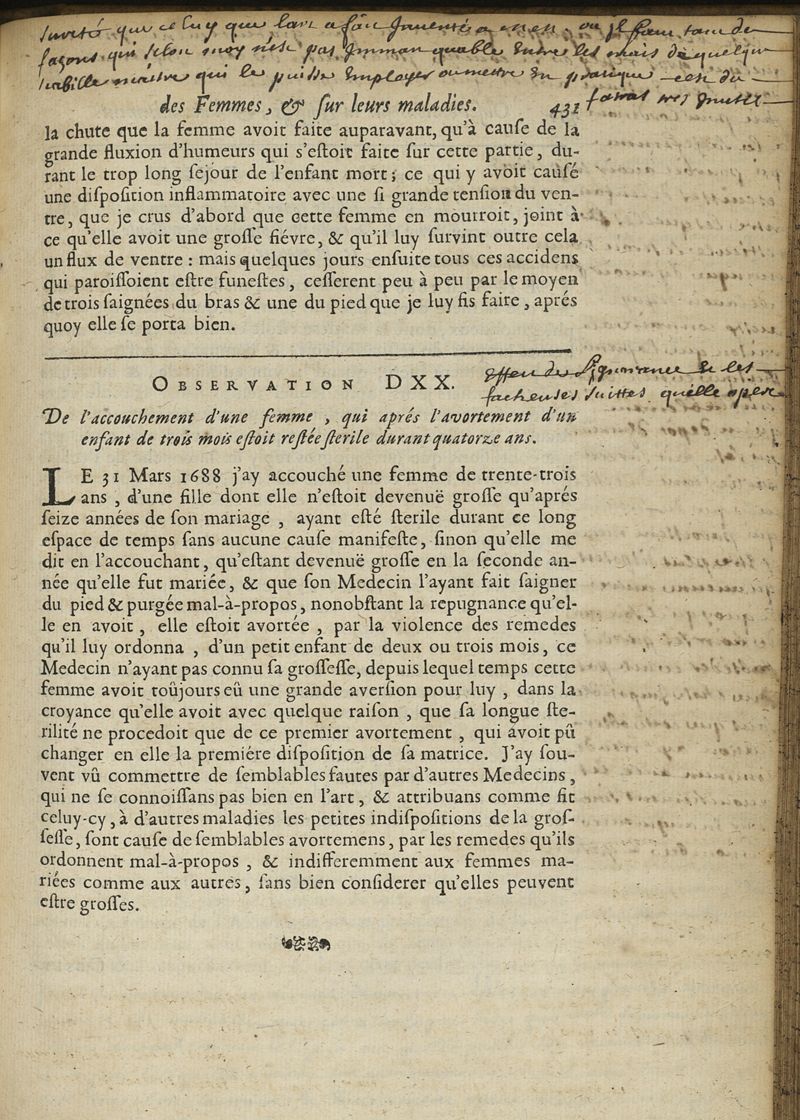 des Femmes, & ſur leurs maladies. 431
la chute que la femme avoit faite auparavant, qu'à cauſe de la
grande fluxion d'humeurs qui s'eſtoit faite ſur cette partie, du-
rant le trop long ſejour de l'enfant mort; ce qui y avoit cauſé
une diſpoſition inflammatoire avec une ſi grande tenſion du ven-
tre, que je crus d'abord que cette femme en mourroit, joint à
ce qu'elle avoit une groſſe fiévre, & qu'il luy ſurvint outre cela
un flux de ventre : mais quelques jours enſuite tous ces accidens
qui paroiſſoient eſtre funeſtes, ceſſerent peu à peu par le moyen
de trois ſaignées du bras & une du pied que je luy fis faire, aprés
quoy elle ſe porta bien.
OBSERVATION DXX.
effen de l'Ignorance & les
facheuses suittes qu'elle opere
De l'accouchement d'une femme, qui aprés l'avortement d'un
enfant de trois mois eſtoit reſtée ſterile durant quatorze ans.
LE 31 Mars 1688 j'ay accouché une femme de trente-trois
ans, d'une fille dont elle n'eſtoit devenuë groſſe qu'aprés
ſeize années de ſon mariage, ayant eſté ſterile durant ce long
eſpace de temps ſans aucune cauſe manifeſte, ſinon qu'elle me
dit en l'accouchant, qu'eſtant devenuë groſſe en la ſeconde an-
née qu'elle fut mariée, & que ſon Medecin l'ayant fait ſaigner
du pied & purgée mal-à-propos, nonobſtant la repugnance qu'el-
le en avoit, elle eſtoit avortée, par la violence des remedes
qu'il luy ordonna, d'un petit enfant de deux ou trois mois, ce
Medecin n'ayant pas connu ſa groſſeſſe, depuis lequel temps cette
femme avoit toûjours eû une grande averſion pour luy, dans la
croyance qu'elle avoit avec quelque raiſon, que ſa longue ſte-
rilité ne procedoit que de ce premier avortement, qui avoit pû
changer en elle la premiére diſpoſition de ſa matrice. J'ay ſou-
vent vû commettre de ſemblables fautes par d'autres Medecins,
qui ne ſe connoiſſans pas bien en l'art, & attribuans comme fit
celuy-cy, à d'autres maladies les petites indiſpoſitions de la groſ-
ſeſſe, ſont cauſe de ſemblables avortemens, par les remedes qu'ils
ordonnent mal-à-propos, & indifferemment aux femmes ma-
riées comme aux autres, ſans bien conſiderer qu'elles peuvent
eſtre groſſes.